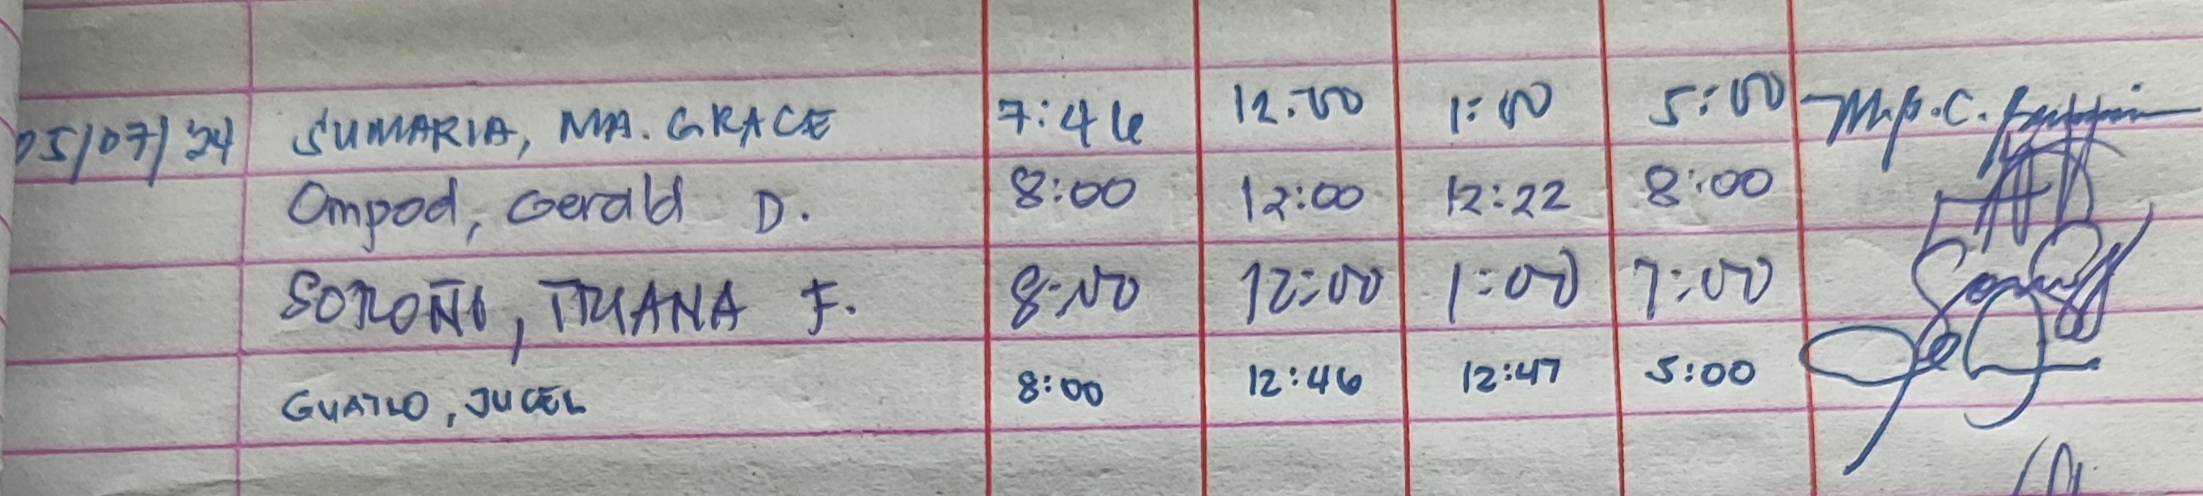 05/07/24 SUMARIA, MA. GRACE 7:46 12:00 1:00 5:00 M.p.C.
Ompod, Gerald D. 8:00 12:00 12:22 8:00
SOROÑO, TRIANA F. 8:00 12:00 1:00 7:00
GUATLO, JUCEL 8:00 12:46 12:47 5:00